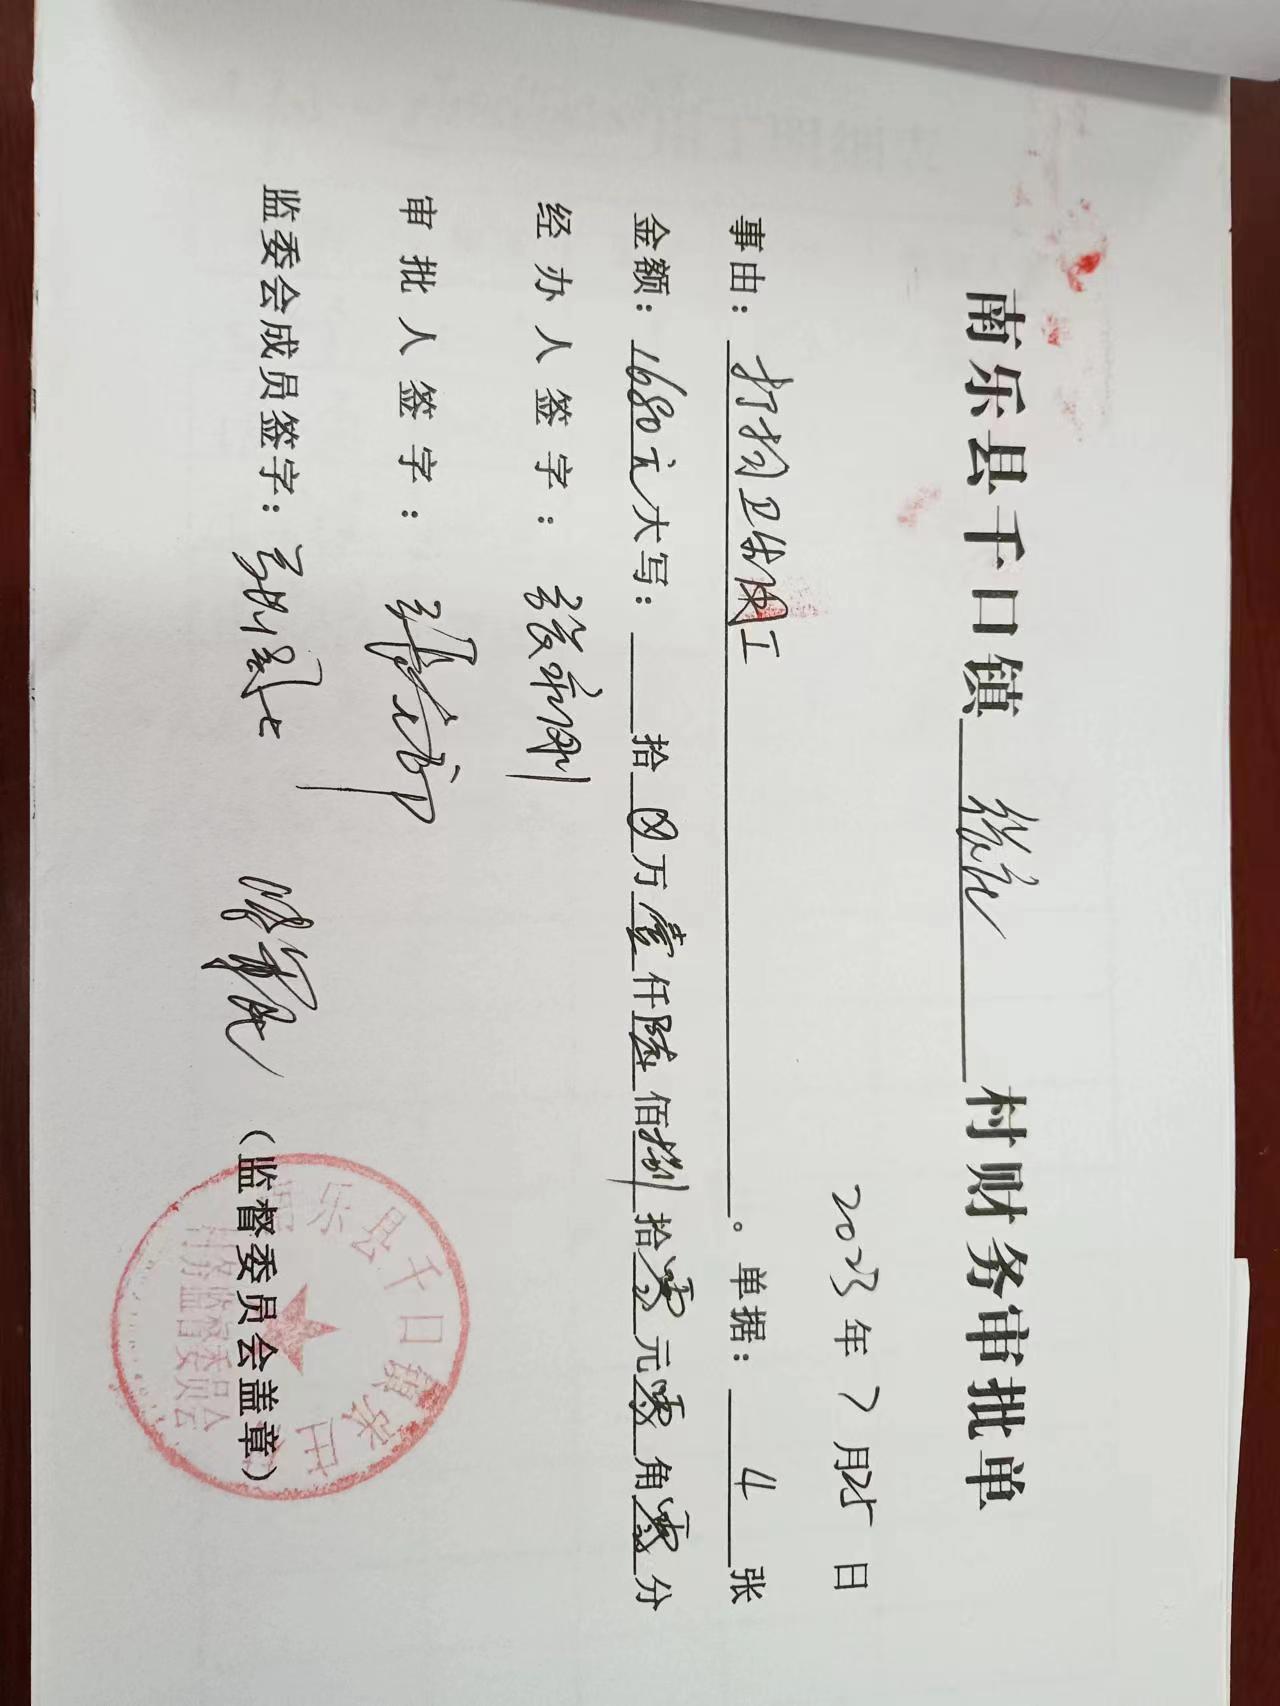 南乐县千口镇 村财务审批单
2023年7月25日
事由：打扫卫生用工。单据：4张
金额：1680元大写：拾⊗万壹仟陆佰捌拾零元零角零分
经办人签字：
审批人签字：
监委会成员签字：
（监督委员会盖章）
乐县千口镇张庄
村务监督委员会